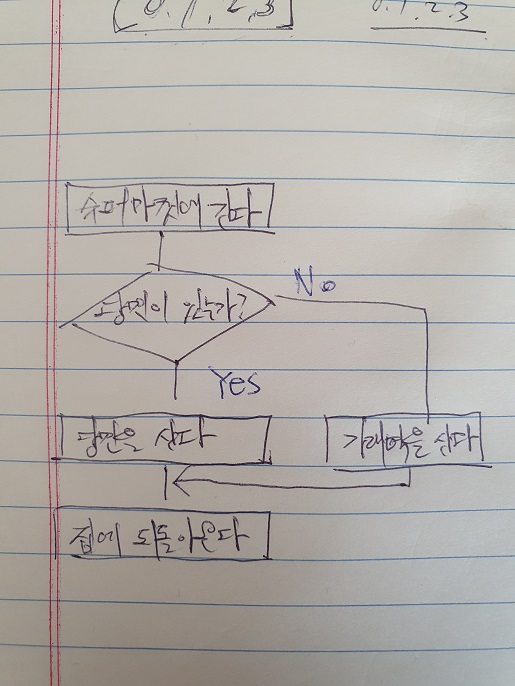 [0.1,2,3]
0.1.2.3
슈퍼마켓에 간다
당면이 있는가?
No
Yes
당면을 산다
가래떡을 산다
집에 되돌아온다